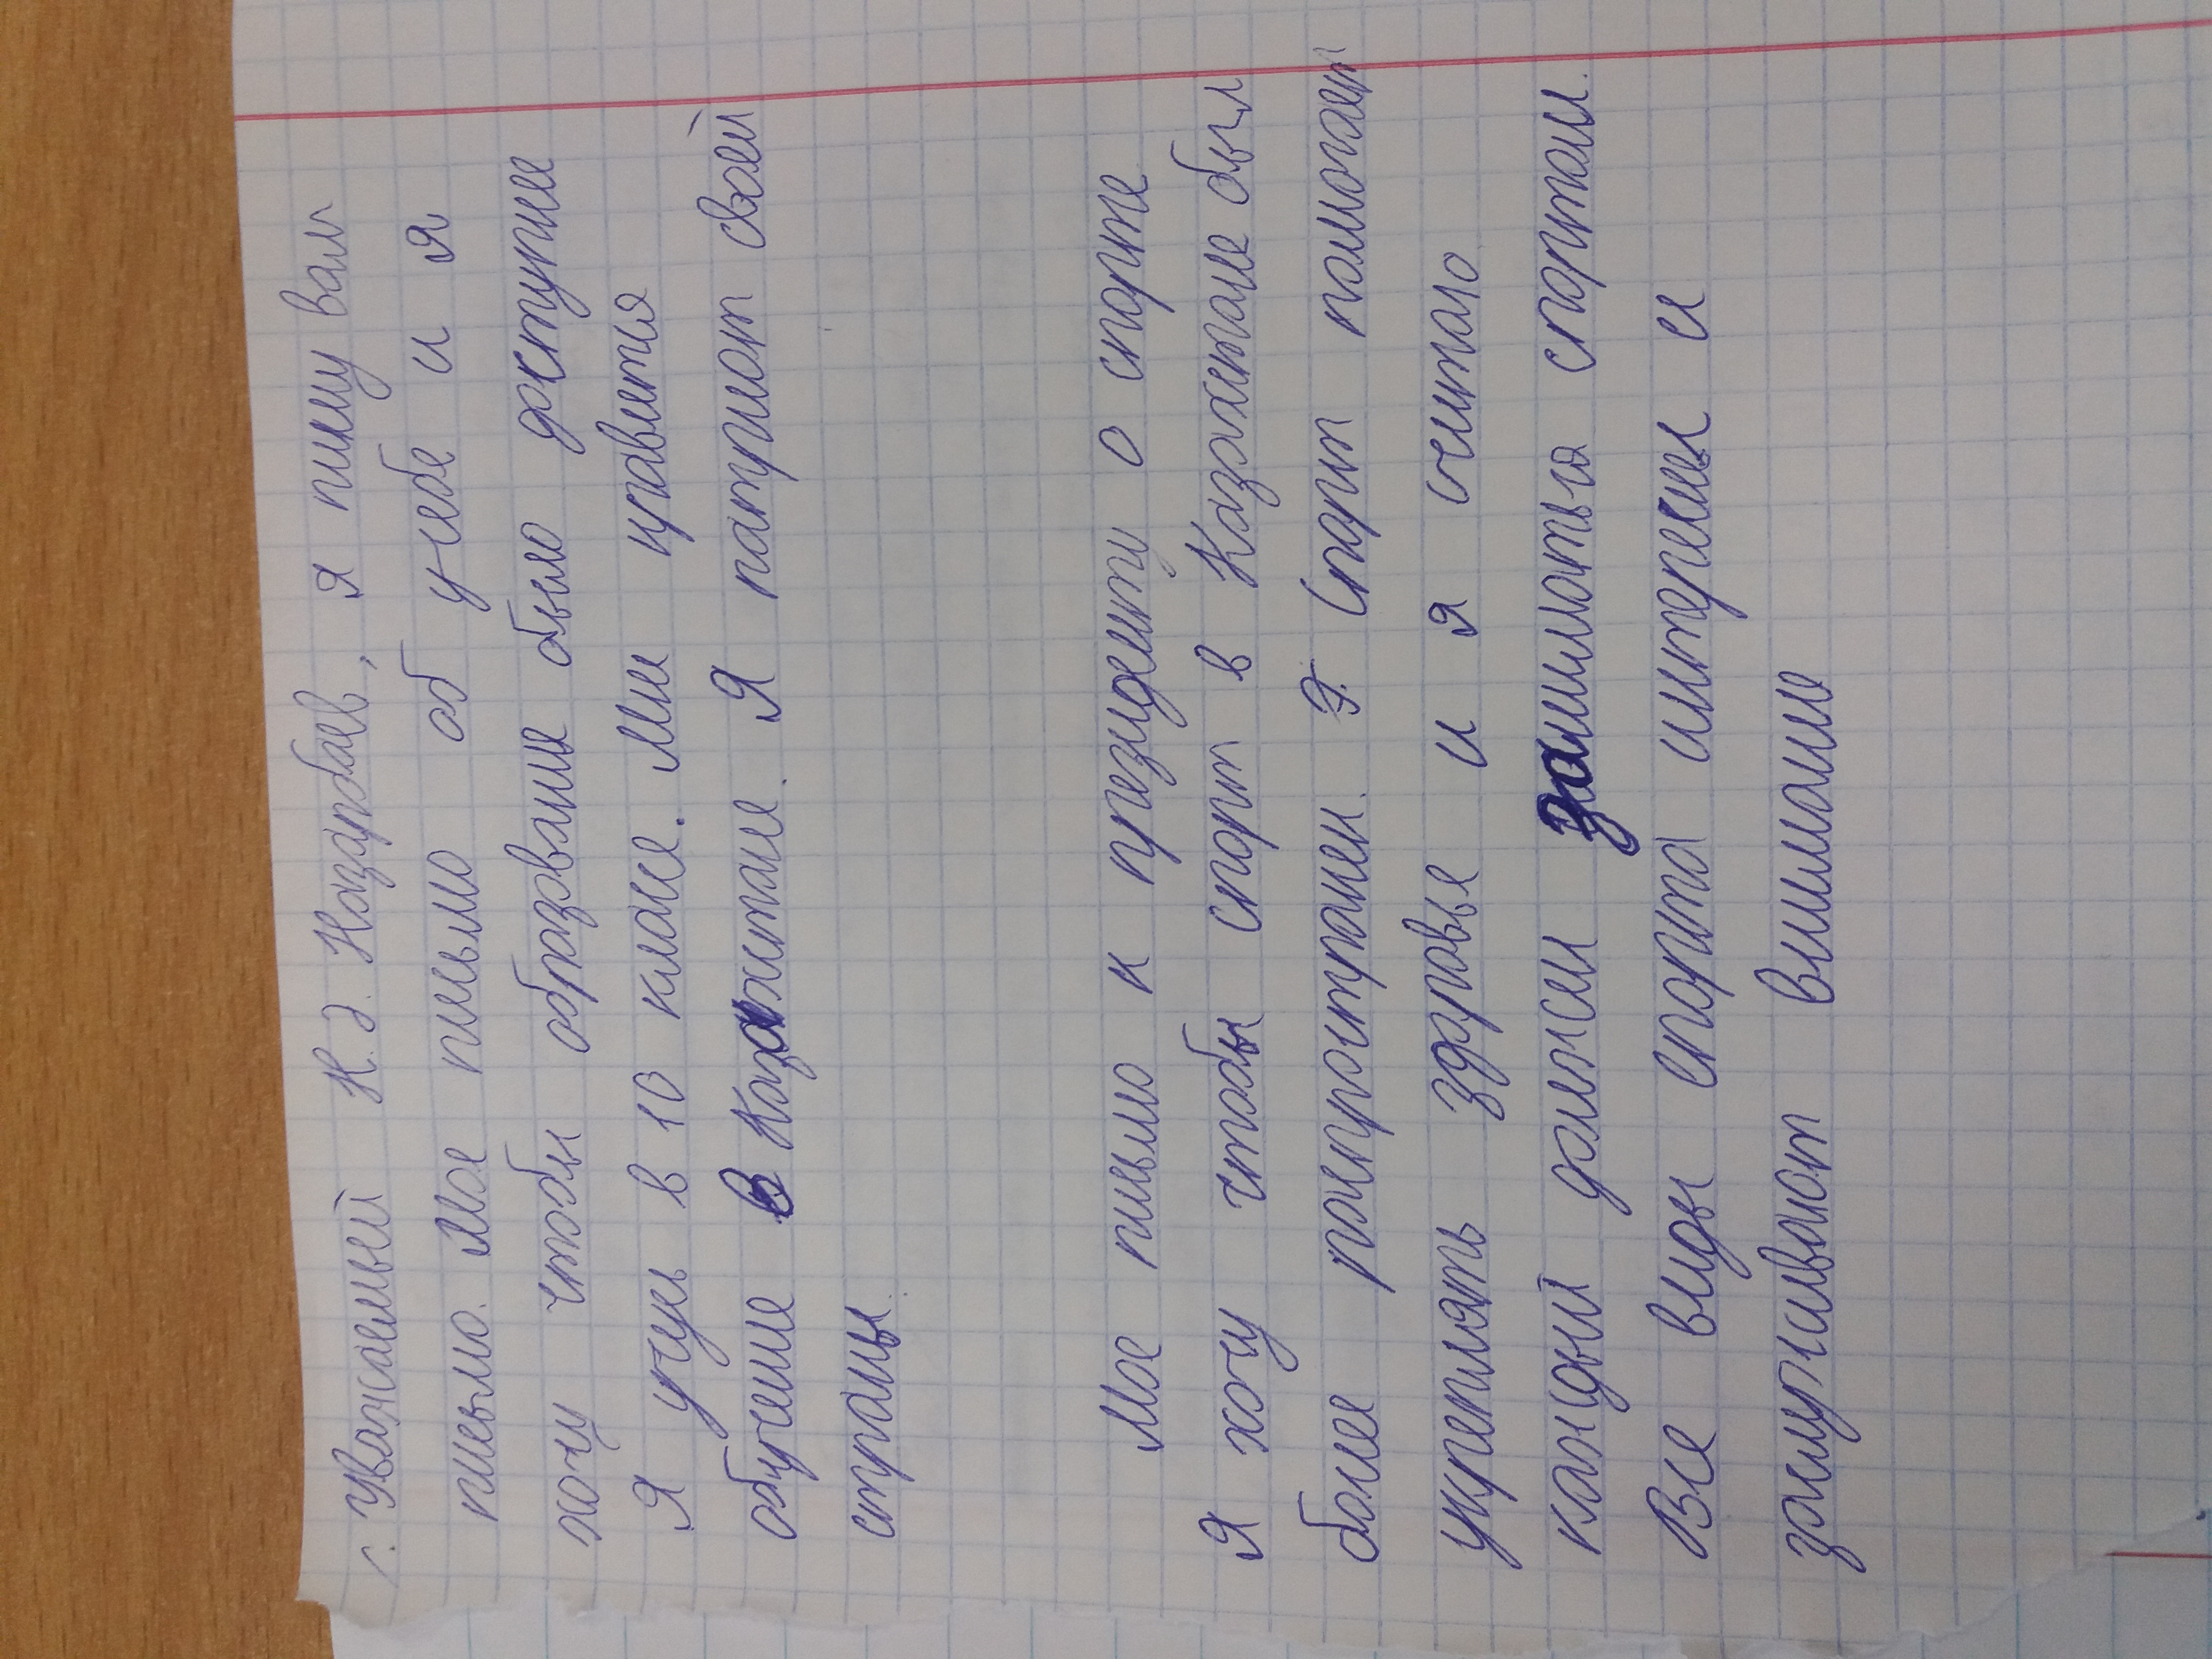 Уважаемый Н.Ә. Назарбаев, я пишу вам
письмо. Мое письмо об учебе и я
хочу чтобы образование было доступнее
Я учусь в 10 классе. Мне нравится
обучение в Казахстане. Я патриот своей
страны.
Мое письмо к президенту о спорте
Я хочу чтобы спорт в Казахстане был
более распространен. Спорт помогает
укреплять здоровье и я считаю
каждый должен заниматься спортом.
Все виды спорта интересны и
заслуживают внимание